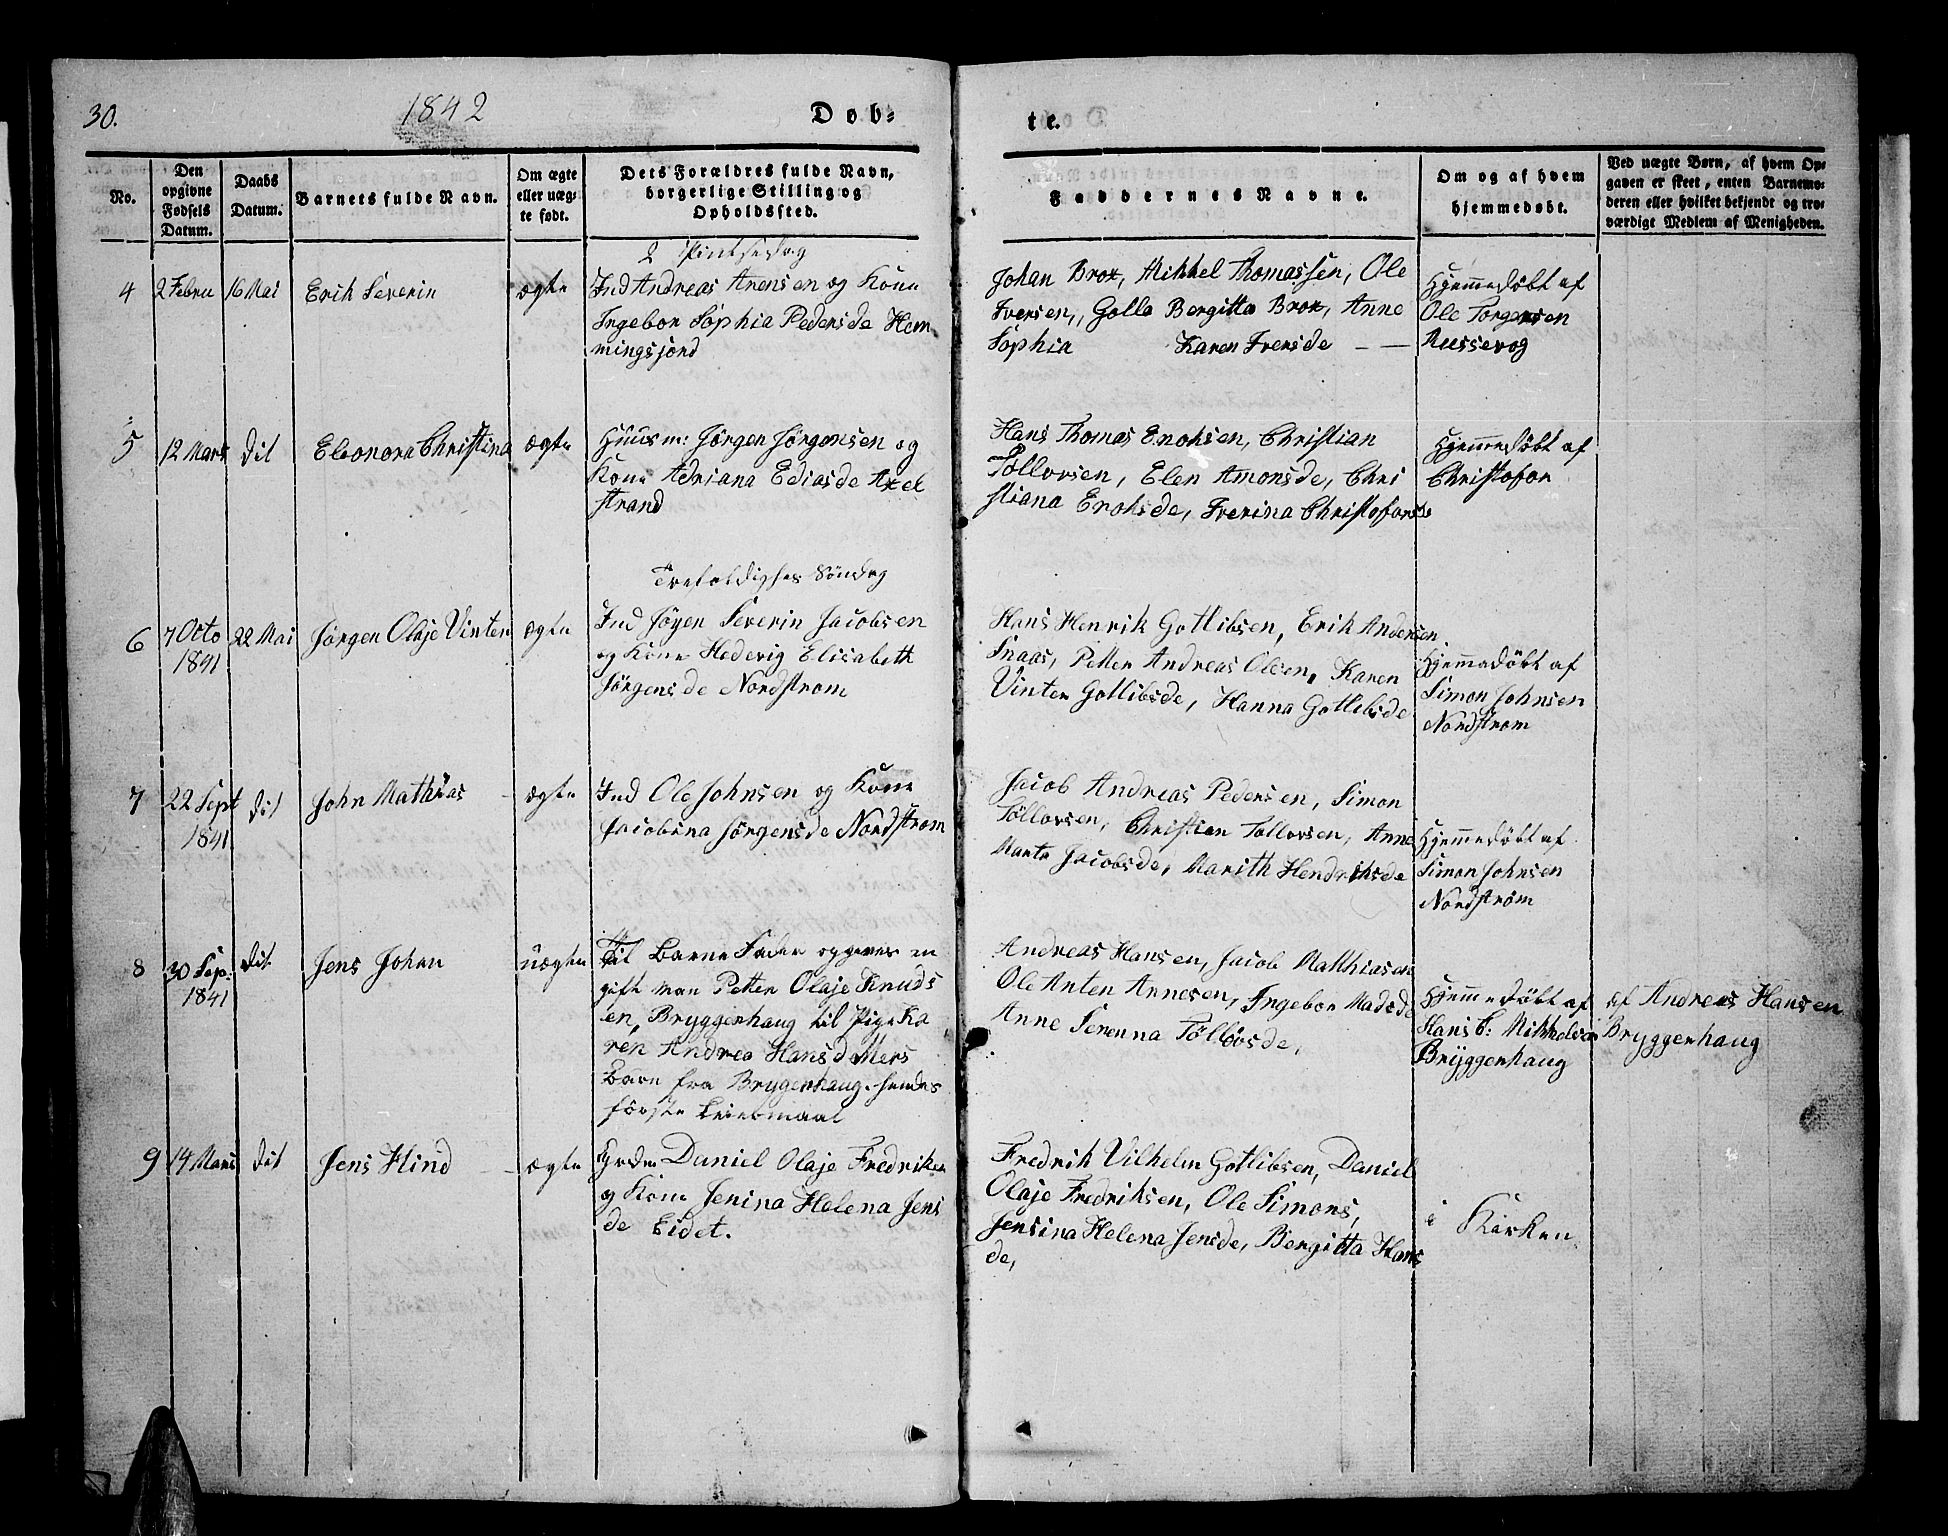 30.
1842
Døb-
te.
No.
Den
opgivne
Fødsels
Datum.
Daabs
Datum.
Barnets fulde Navn.
Om ægte
eller uæg-
te født.
Dets Forældres fulde Navn,
borgerlige Stilling og
Opholdssted.
Faddernes Navne.
Om og af hvem
hjemmedøbt.
Ved uægte Børn, af hvem Op-
gaven er skeet, enten Barnemo-
deren eller hvilket bekjendt og tro-
værdigt Medlem af Menigheden.
2 Pintsedag
4
2 Febru
16 Mai
Erik Severin
ægte
Ind Andreas Arensen og Kone
Ingebor Sophia Pedersde Hem
mingsjord
Johan Brox, Mikkel Thomassen, Ole
Iversen, Golla Bergitta Brox, Anne
Sophia Karen Iversde
Hjemmedøbt af
Ole Torgersen
Russevog
5
12 Mars
dit
Eleonora Christina
ægte
Huusm: Jørgen Jørgensen og
Kone Adriana Ediasde Axel
strand
Hans Thomas Enoksen, Christian
Tollovsen, Elen Amonsde, Chri
stiana Enoksde, Iverina Christofersde
Hjemmedøbt af
Christofor
Trefoldigheds Søndag
6
7 Octo
1841
22 Mai
Jørgen Olaje Vinten
ægte
Ind Jøgen Severin Jacobsen
og Kone Hedevig Elisabeth
Jørgensde Nordstrom
Hans Henrik Gotlibsen, Erik Andersen
Snaas, Petter Andreas Olsen, Karen
Vinter Gotlibsde, Hanna Gotlibsde
Hjemmedøbt af
Simon Johnsen
Nordstrom
7
22 Sept
1841
dit
John Mathias
ægte
Ind Ole Johnsen og Kone
Jacobina Jørgensde Nordstrom
Jacob Andreas Pedersen, Simon
Tøllovsen, Christian Tollovsen, Anne
Marta Jacobsde, Marith Hendriksde
Hjemmedøbt af
Simon Johnsen
Nordstrøm
8
30 Sep.
1841
dit
Jens Johan
uægte
Til Barne Fader opgives en
gift man Petter Olaje Knuds
en, Bryggenhaug til Pige Ka
ren Andrea Hansd Mers
Barn fra Brygenhaug. hendes
første Leiermaal
Andreas Hansen, Jacob Mathiasen
Ole Anten Annesen, Ingebor Madsde
Anne Serenna Tølløvsde,
Hjemmedøbt af
Hans C: Mikkelsen
Bryggenhaug
af Andreas Hansen
Bryggenhaug
9
14 Mars
dit
Jens Hind
ægte
Grdm Daniel Olaje Fredriksen
og Kone Jenina Helena Jens
de Eidet.
Fredrik Vilhelm Gotlibsen, Daniel
Olaje Fredriksen, Ole Simons,
Jensina Helena Jensde, Bergitta Hans
de,
i Kirken.